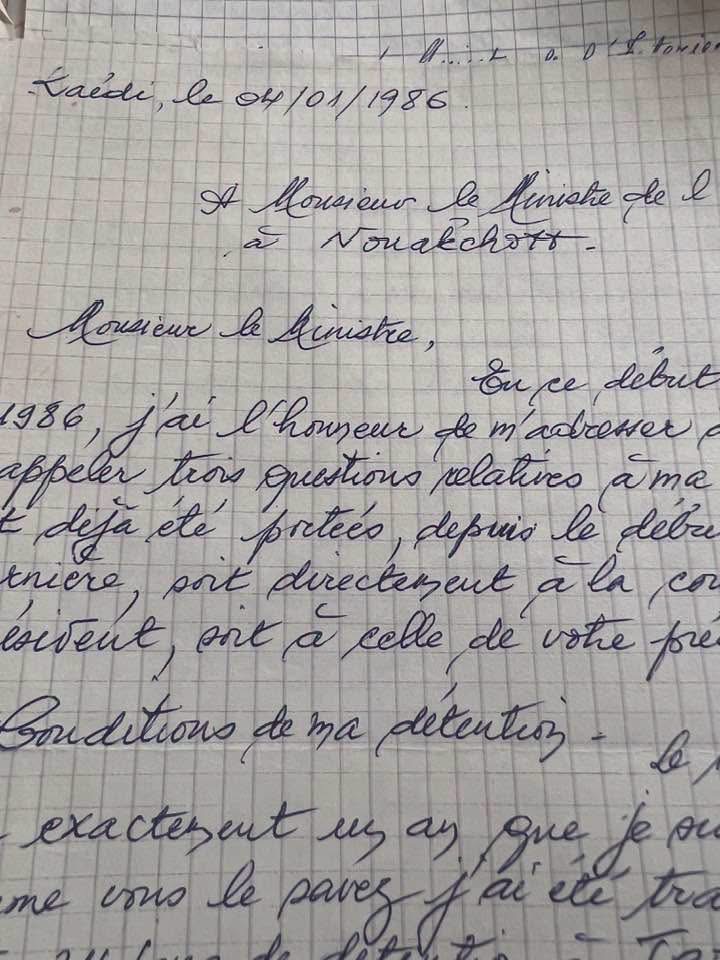 Kaédi, le 04/01/1986.
A Monsieur le Ministre de l
à Nouakchott.
Monsieur le Ministre,
En ce début
1986, j'ai l'honneur de m'adresser
appeler trois questions relatives à ma
t déjà été portées, depuis le débu
rnière, soit directement à la con
ésident, soit à celle de votre pré
Conditions de ma détention.
le
exactement un an que je su
me vous le savez j'ai été tra
de détention à